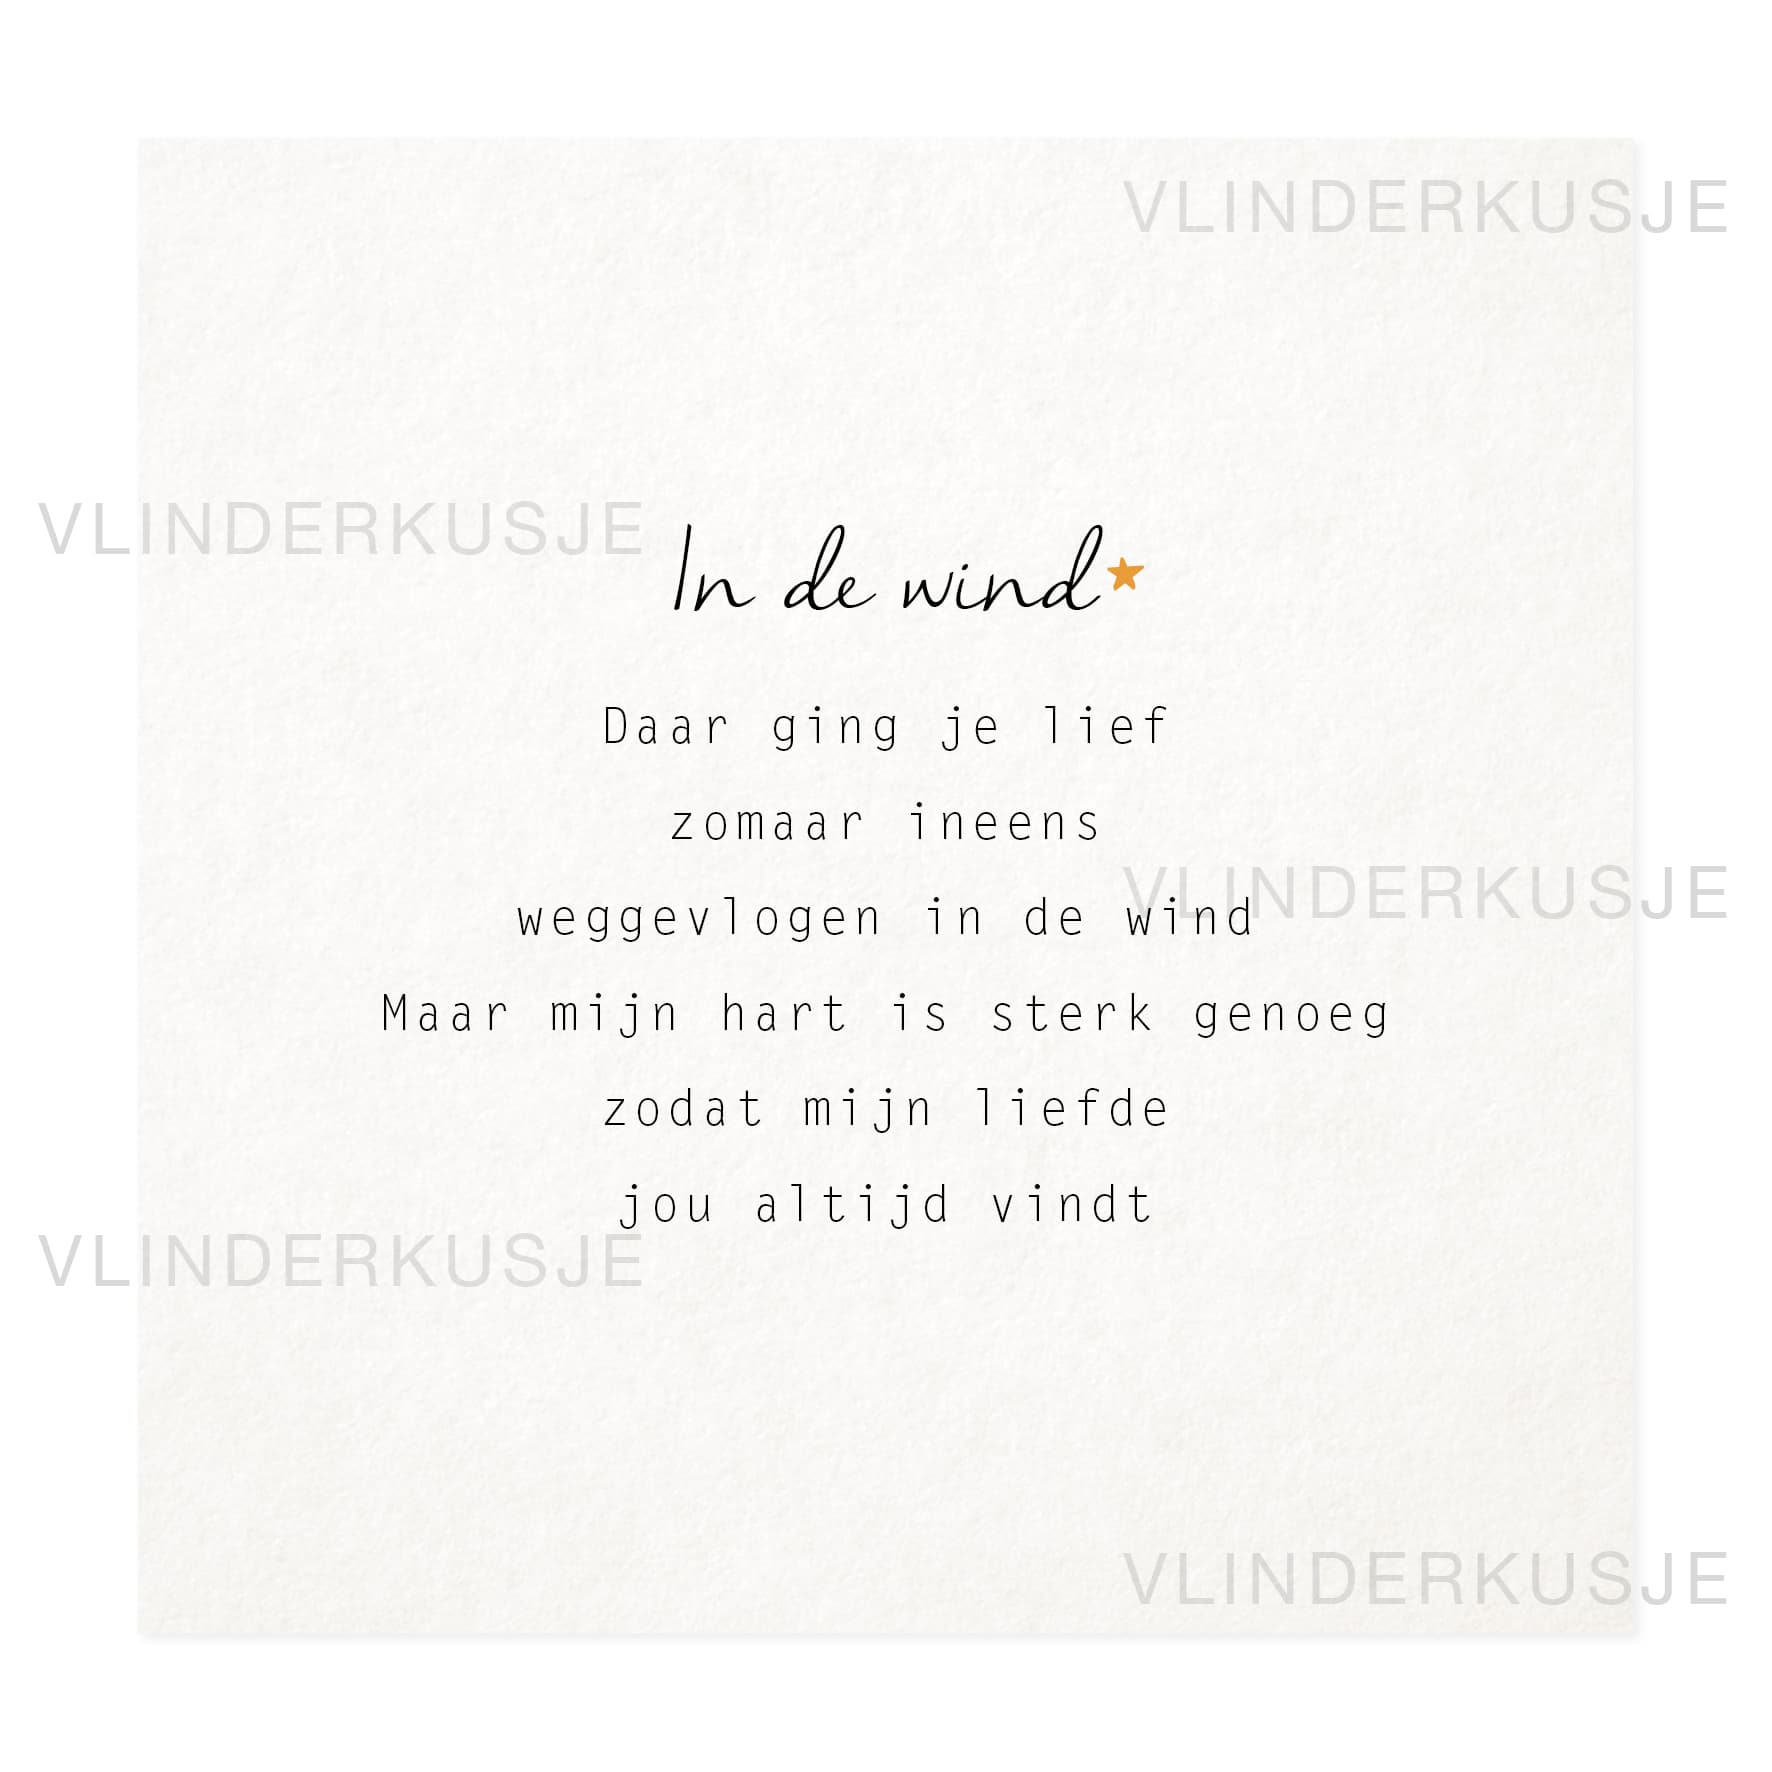 VLINDERKUSJE
VLINDERKUSJE
In de wind
Daar ging je lief
zomaar ineens
VLINDERKUSJE
weggevlogen in de wind
Maar mijn hart is sterk genoeg
zodat mijn liefde
jou altijd vindt
VLINDERKUSJE
VLINDERKUSJE